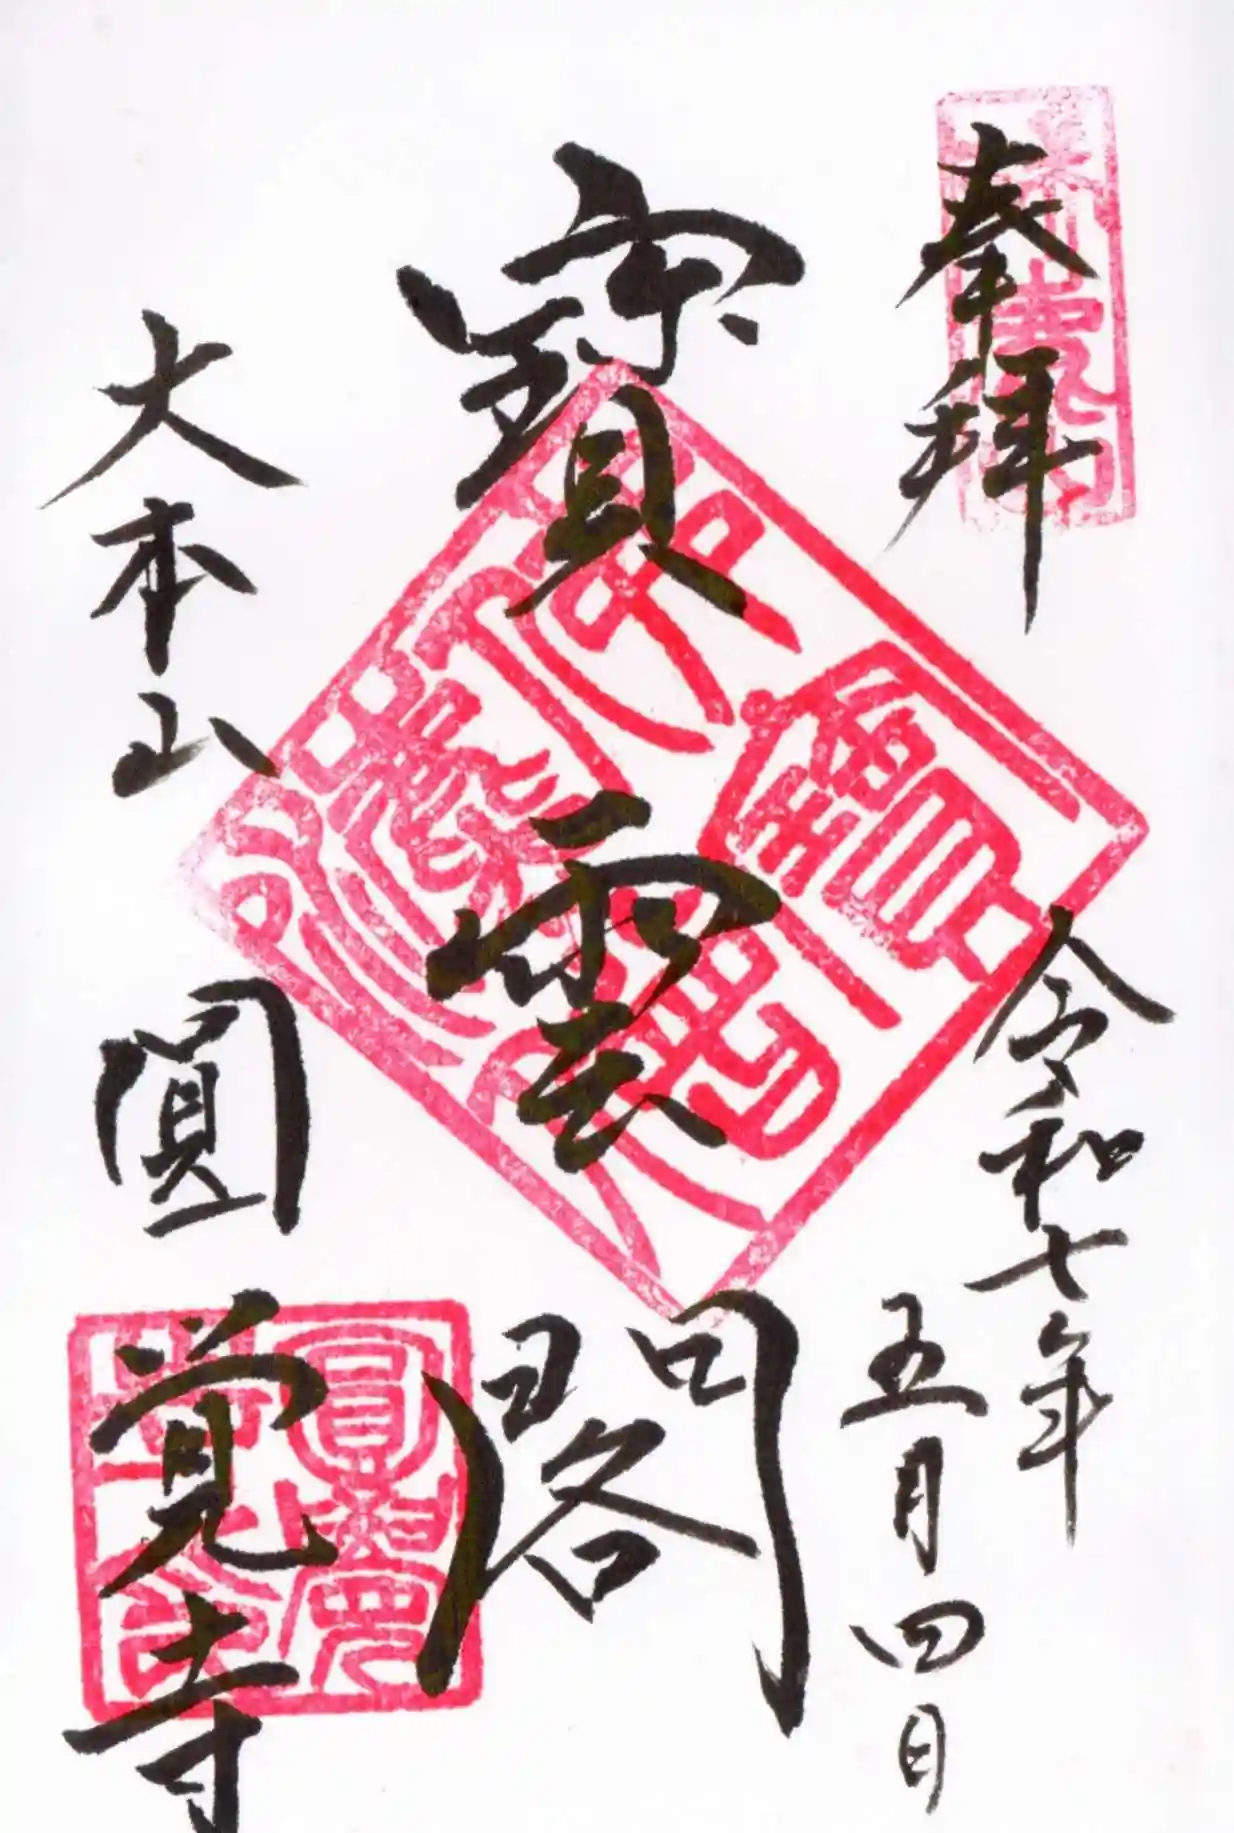 奉拝
令和七年
五月四日
寶雲閣
大本山
圓覚寺